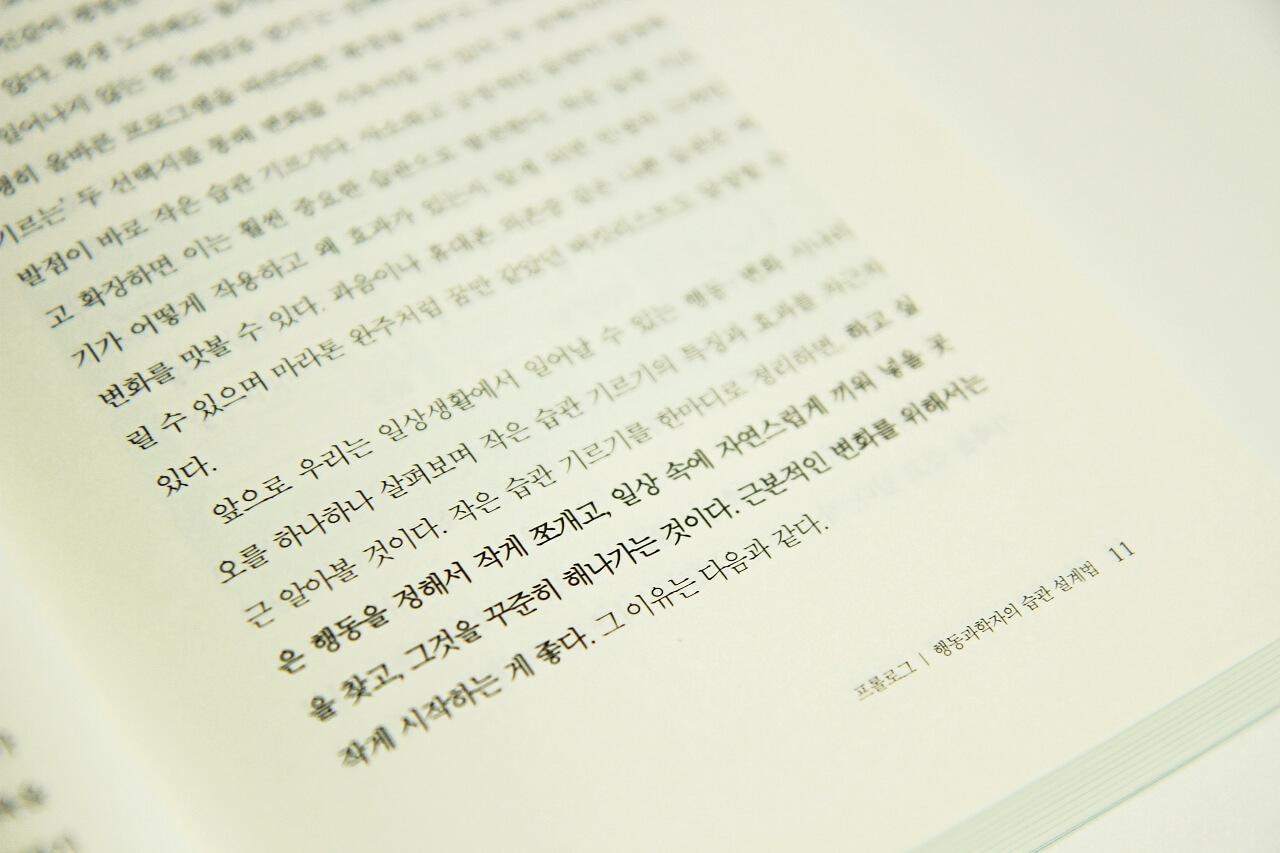 않다. 평생
일어나지 않는 한
히 올바른 프로그램을
기르는' 두 선택지를 통해 변화를 지속시킬 수 있다.
발점이 바로 작은 습관 기르기다. 사소하고 긍정적인
고 확장하면 이는 훨씬 중요한 습관으로 발전한다. 작은 습관 기르
기가 어떻게 작용하고 왜 효과가 있는지 알게 되면
변화를 맛볼 수 있다. 과음이나 휴대폰 의존증 같은 나쁜 습관은 버
릴 수 있으며 마라톤 완주처럼 꿈만 같았던 버킷리스트도 달성할 수
있다.
앞으로 우리는 일상생활에서 일어날 수 있는 행동 변화 시나리
오를 하나하나 살펴보며 작은 습관 기르기의 특징과 효과를 차근차
근 알아볼 것이다. 작은 습관 기르기를 한마디로 정리하면, 하고 싶
은 행동을 정해서 작게 쪼개고, 일상 속에 자연스럽게 끼워 넣을 곳
을 찾고, 그것을 꾸준히 해나가는 것이다. 근본적인 변화를 위해서는
작게 시작하는 게 좋다. 그 이유는 다음과 같다.
프롤로그 | 행동과학자의 습관 설계법 11